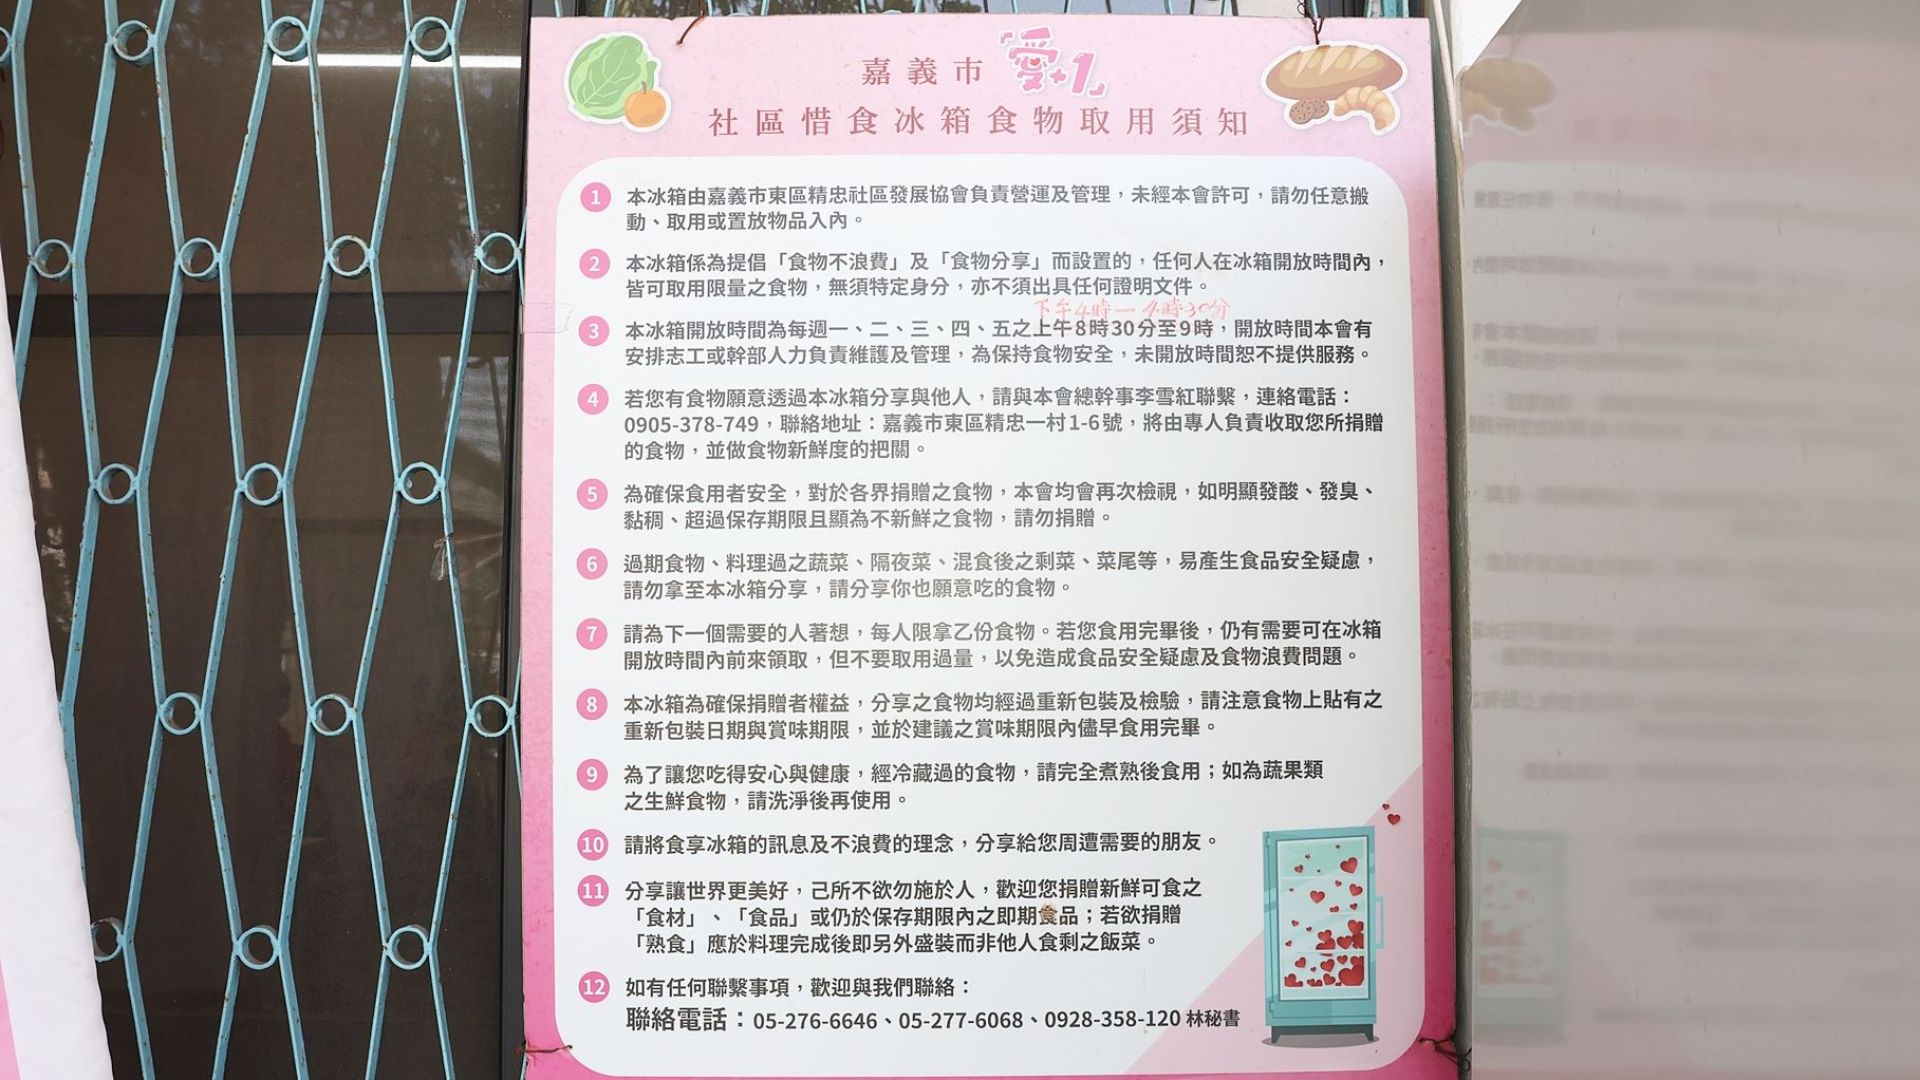 嘉義市「愛+1」
社區惜食冰箱食物取用須知
1 本冰箱由嘉義市東區精忠社區發展協會負責營運及管理，未經本會許可，請勿任意搬
動、取用或置放物品入內。
2 本冰箱係為提倡「食物不浪費」及「食物分享」而設置的，任何人在冰箱開放時間內，
皆可取用限量之食物，無須特定身分，亦不須出具任何證明文件。
下午4時一4時30分
3 本冰箱開放時間為每週一、二、三、四、五之上午8時30分至9時，開放時間本會有
安排志工或幹部人力負責維護及管理，為保持食物安全，未開放時間恕不提供服務。
4 若您有食物願意透過本冰箱分享與他人，請與本會總幹事李雪紅聯繫，連絡電話：
0905-378-749，聯絡地址：嘉義市東區精忠一村1-6號，將由專人負責收取您所捐贈
的食物，並做食物新鮮度的把關。
5 為確保食用者安全，對於各界捐贈之食物，本會均會再次檢視，如明顯發酸、發臭、
黏稠、超過保存期限且顯為不新鮮之食物，請勿捐贈。
6 過期食物、料理過之蔬菜、隔夜菜、混食後之剩菜、菜尾等，易產生食品安全疑慮，
請勿拿至本冰箱分享，請分享你也願意吃的食物。
7 請為下一個需要的人著想，每人限拿乙份食物。若您食用完畢後，仍有需要可在冰箱
開放時間內前來領取，但不要取用過量，以免造成食品安全疑慮及食物浪費問題。
8 本冰箱為確保捐贈者權益，分享之食物均經過重新包裝及檢驗，請注意食物上貼有之
重新包裝日期與賞味期限，並於建議之賞味期限內儘早食用完畢。
9 為了讓您吃得安心與健康，經冷藏過的食物，請完全煮熟後食用；如為蔬果類
之生鮮食物，請洗淨後再使用。
10 請將食享冰箱的訊息及不浪費的理念，分享給您周遭需要的朋友。
11 分享讓世界更美好，己所不欲勿施於人，歡迎您捐贈新鮮可食之
「食材」、「食品」或仍於保存期限內之即期食品；若欲捐贈
「熟食」應於料理完成後即另外盛裝而非他人食剩之飯菜。
12 如有任何聯繫事項，歡迎與我們聯絡：
聯絡電話：05-276-6646、05-277-6068、0928-358-120 林秘書